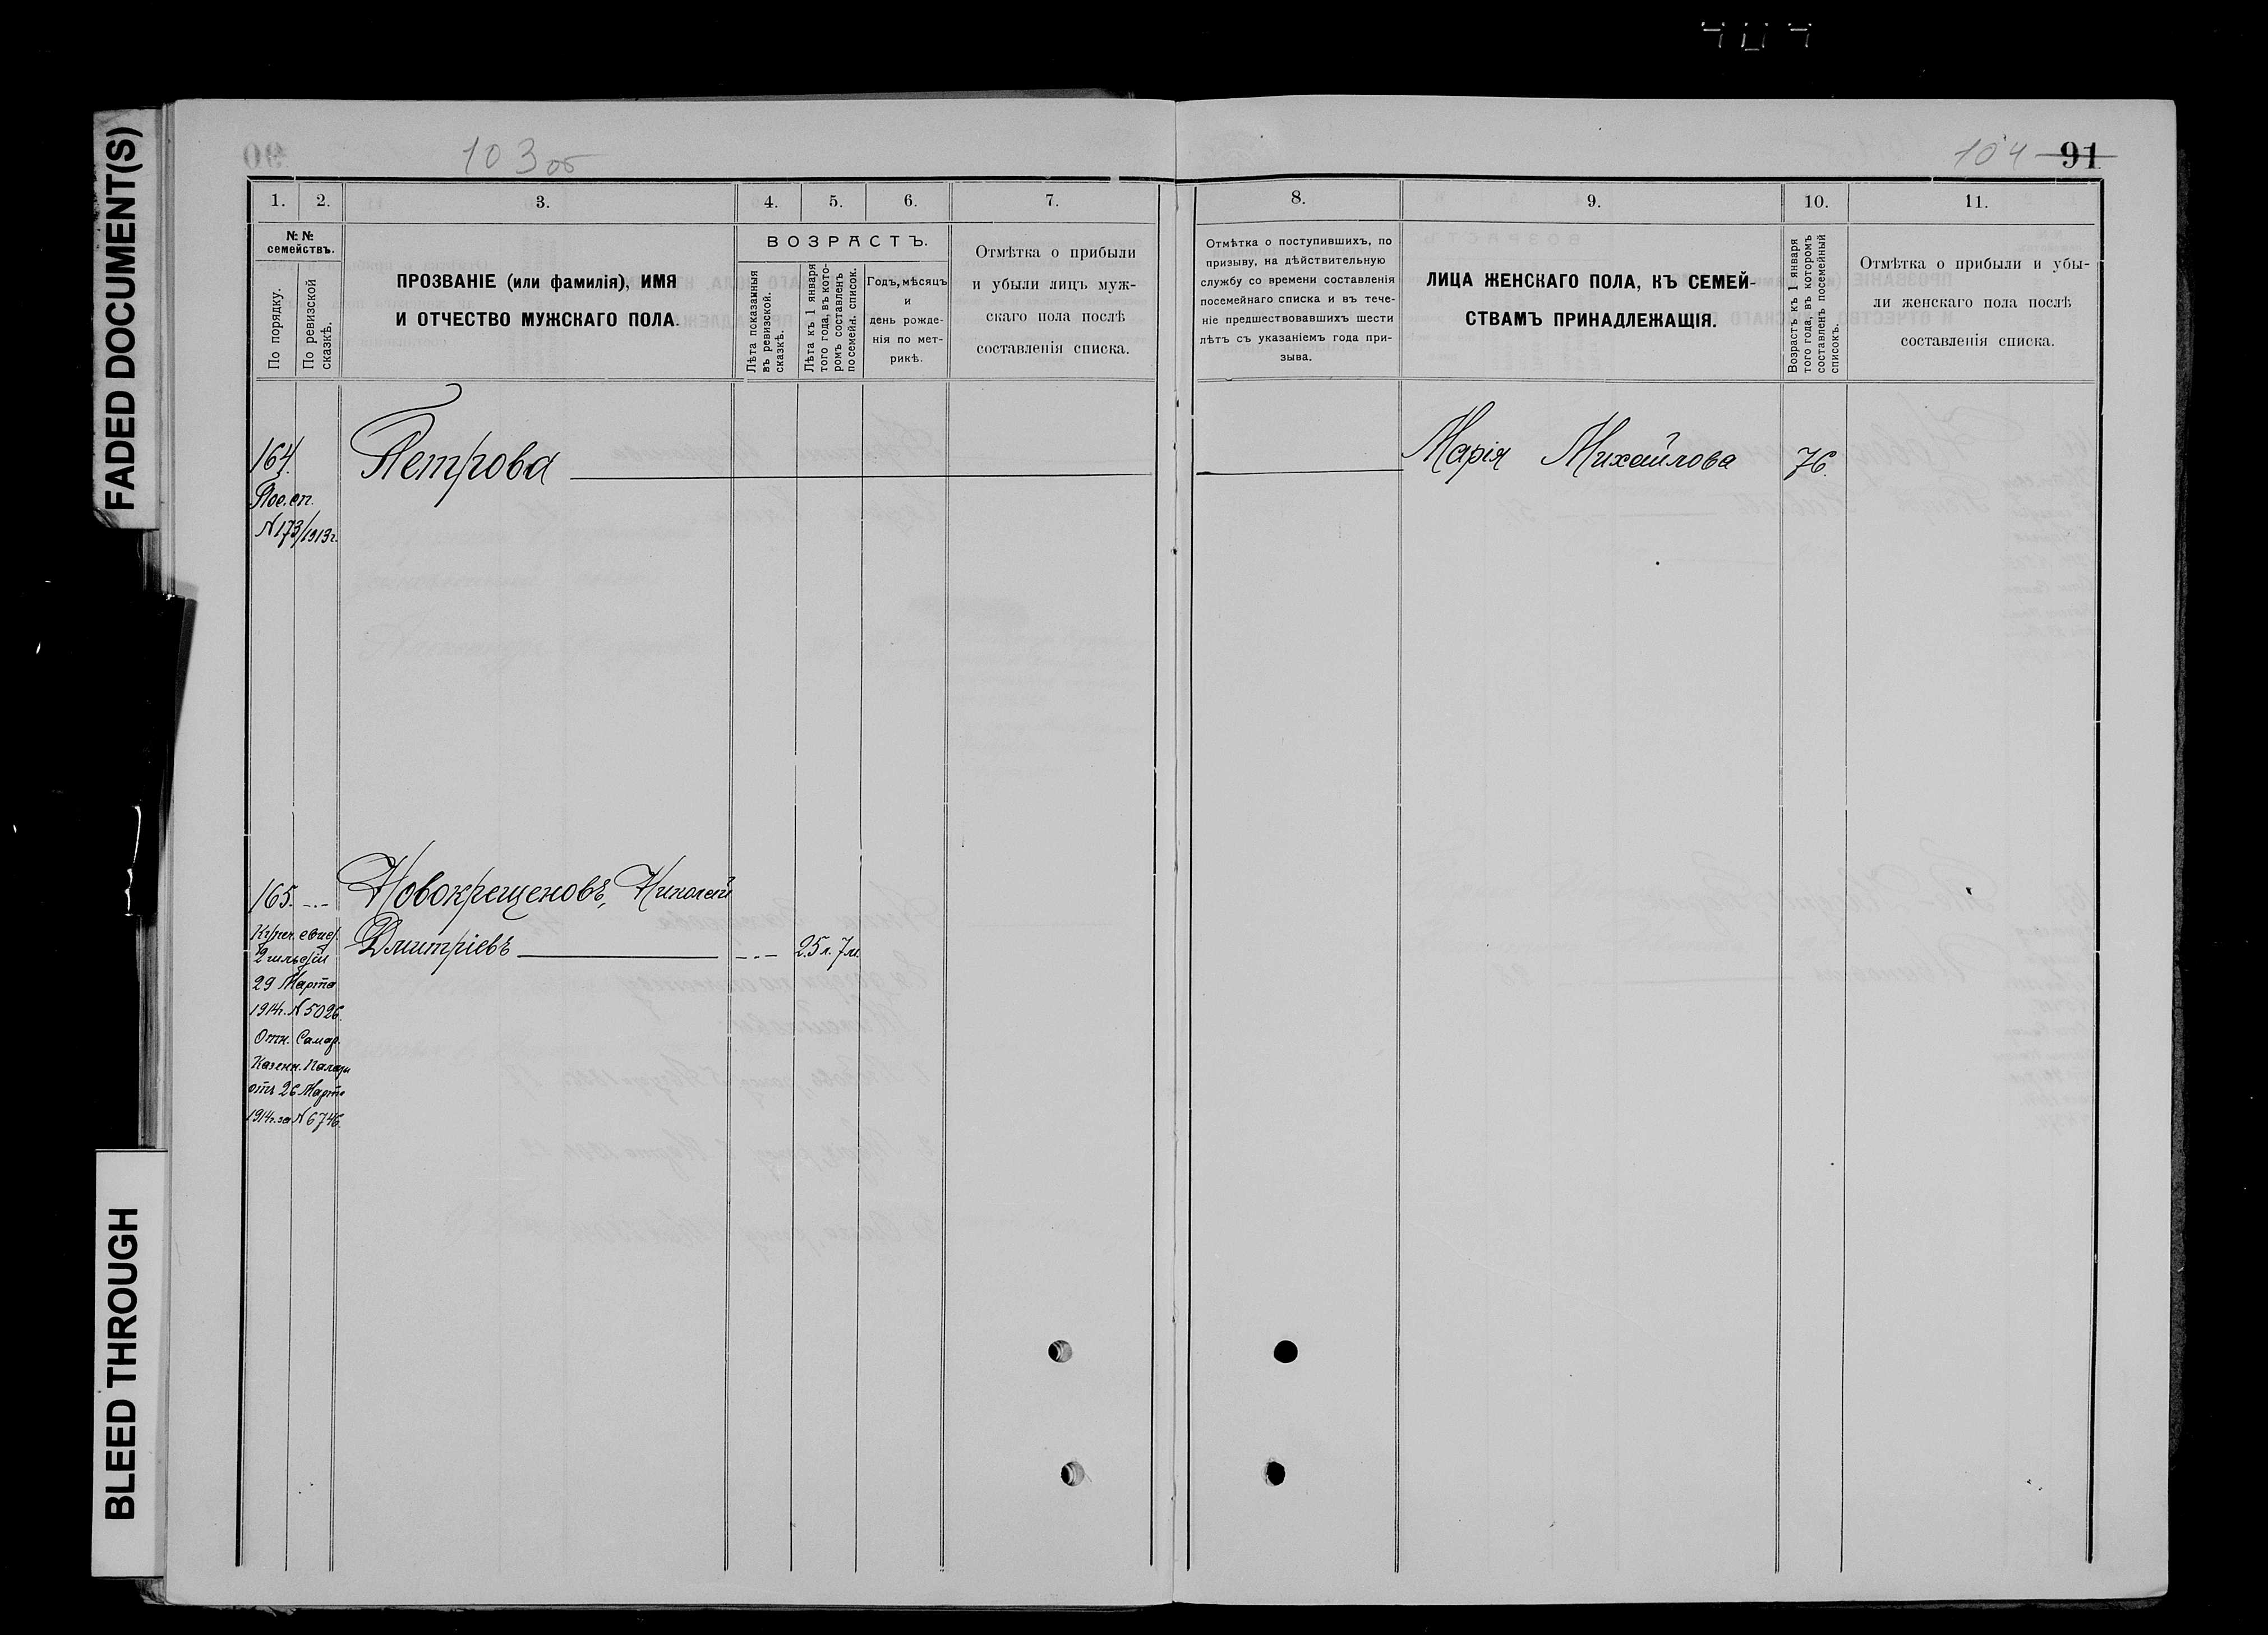 FADED DOCUMENT(S)
BLEED THROUGH
103 об
104 91
1. 2. 3. 4. 5. 6. 7.
№ №
семействъ.
По порядку.
По ревизской
сказкѣ.
ПРОЗВАНІЕ (или фамилія), ИМЯ
И ОТЧЕСТВО МУЖСКАГО ПОЛА.
ВОЗРАСТЪ.
Лѣта показанныя
въ ревизской.
сказкѣ.
Лѣта къ 1 января
того года, въ кото-
ромъ составленъ
посемейн. список.
Годъ, мѣсяцъ
и
день рожде-
нія по мет-
рикѣ.
Отмѣтка о прибыли
и убыли лицъ муж-
скаго пола послѣ
составленія списка.
164.
Пос. сп.
N 173/1913г.
Петрова
165. -.-
Новокрещеновъ, Николай
Дмитріевъ -.- 25 л. 7 м.
Купеч. свид.
2 гильдіи
29 Марта
1914г. N 5026.
Отн. Самар.
Казенн. Палаты
отъ 26 Марта
1914г. за N 6746.
8. 9. 10. 11.
Отмѣтка о поступившихъ, по
призыву, на дѣйствительную
службу со времени составленія
посемейнаго списка и въ тече-
ніе предшествовавшихъ шести
лѣтъ съ указаніемъ года при-
зыва.
ЛИЦА ЖЕНСКАГО ПОЛА, КЪ СЕМЕЙ-
СТВАМЪ ПРИНАДЛЕЖАЩІЯ.
Возрастъ къ 1 января
того года, въ которомъ
составленъ посемейный
списокъ.
Отмѣтка о прибыли и убы-
ли женскаго пола послѣ
составленія списка.
Марія Михайлова 76.